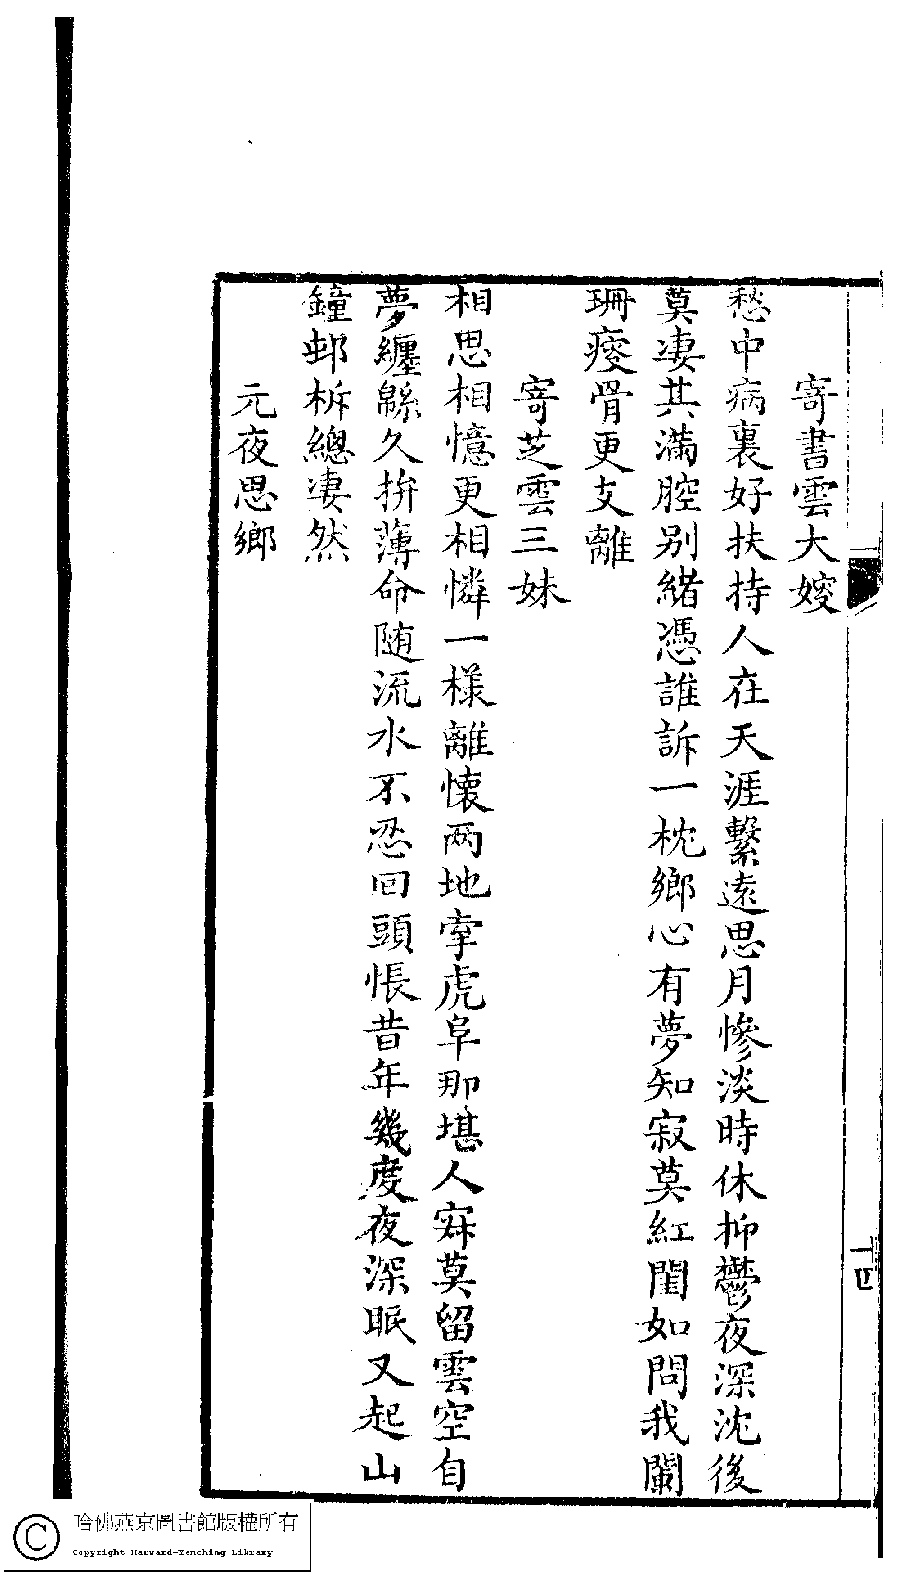 寄書雲大嫂
愁中病裏好扶持人在天涯繫遠思月慘淡時休抑鬱夜深沈後
莫凄其滿腔别緒憑誰訴一枕鄉心有夢知寂莫紅閨如問我闌
珊瘦骨更支離
寄芝雲三妹
相思相憶更相憐一樣離懷两地牽虎阜那堪人寂莫留雲空自
夢纏緜久拚薄命随流水不忍回頭悵昔年幾度夜深眠又起山
鐘邨柝總凄然
元夜思鄉
十四
哈佛燕京圖書館版權所有
Copyright Harvard-Yenching Library